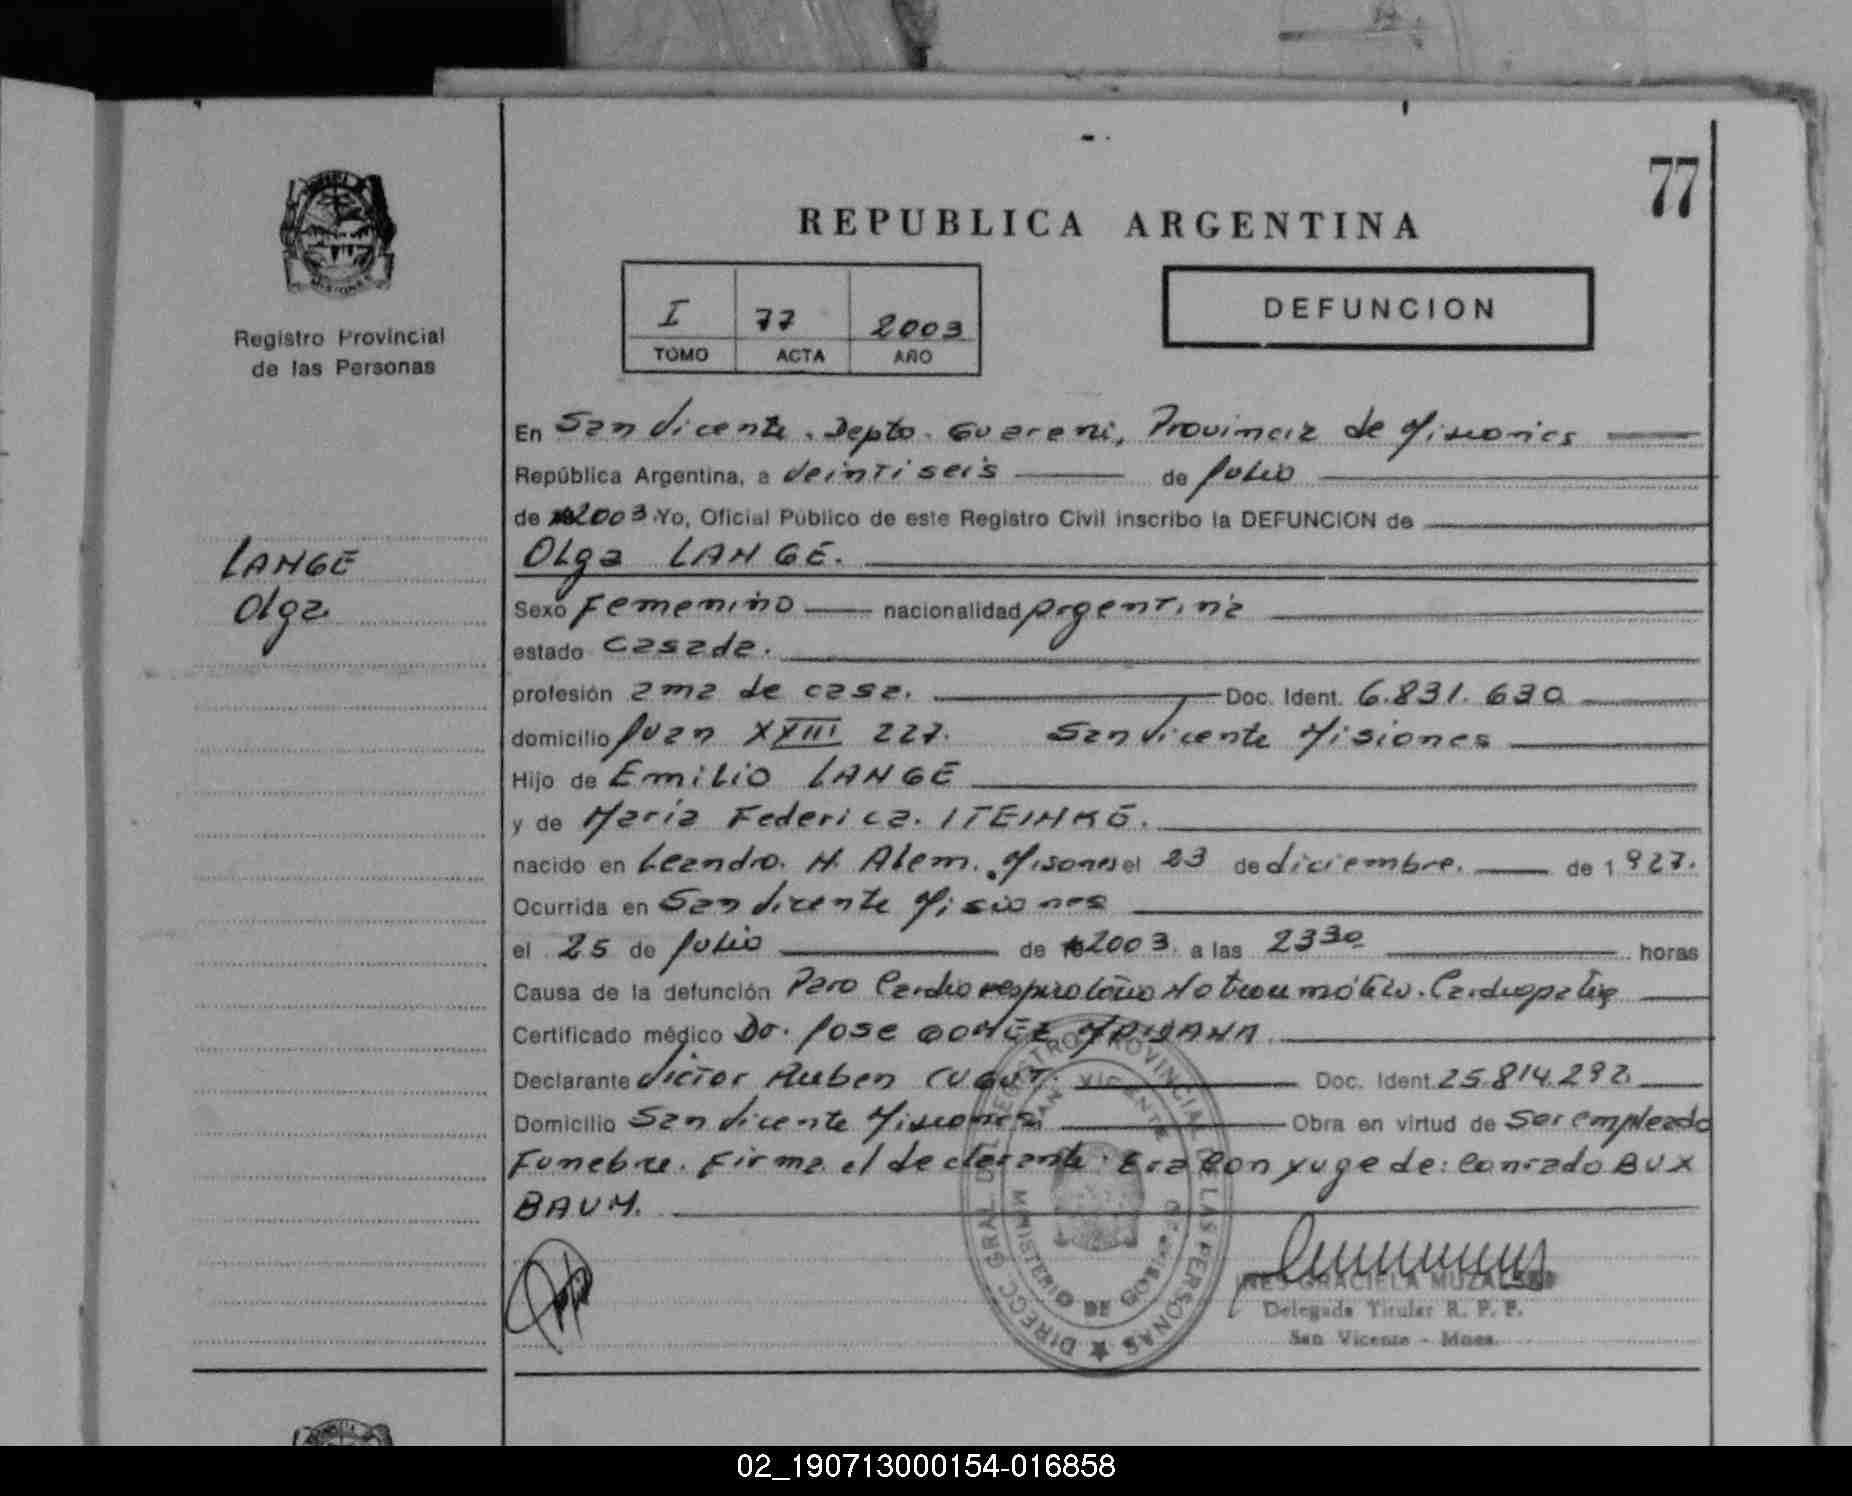 77
REPUBLICA ARGENTINA
DEFUNCION
I 77 2003
TOMO ACTA AÑO
Registro Provincial
de las Personas
LANGE
Olga
En San Vicente. Depto. Guarani, Provincia de Misiones
República Argentina, a Veintiseis de Julio
de 2003. Yo, Oficial Público de este Registro Civil inscribo la DEFUNCION de
Olga LANGE.
Sexo Femenino nacionalidad Argentina
estado Casada.
profesión ama de casa. Doc. Ident. 6.831.630
domicilio Juan XXIII 227. San Vicente Misiones
Hijo de Emilio LANGE
y de Maria Federica. ITEINKE.
nacido en Leandro. N. Alem. Misiones el 23 de diciembre. de 1927.
Ocurrida en San Vicente Misiones
el 25 de Julio de 2003. a las 23 30 horas
Causa de la defunción Paro Cardio respiratorio No traumático. Cardiopatia
Certificado médico Dr. Jose GOMEZ
Declarante Victor Ruben Doc. Ident. 25.814.292.
Domicilio San Vicente Misiones Obra en virtud de Ser empleado
Funebre. Firma el declarante. Era Conyuge de: Conrado BUX
BAUM.
DIRECC. GRAL. DEL REGISTRO PROVINCIAL DE LAS PERSONAS
SAN VICENTE
MINISTERIO DE GOBIERNO
INES GRACIELA
Delegada Titular R. P. P.
San Vicente - Mnes.
02_190713000154-016858